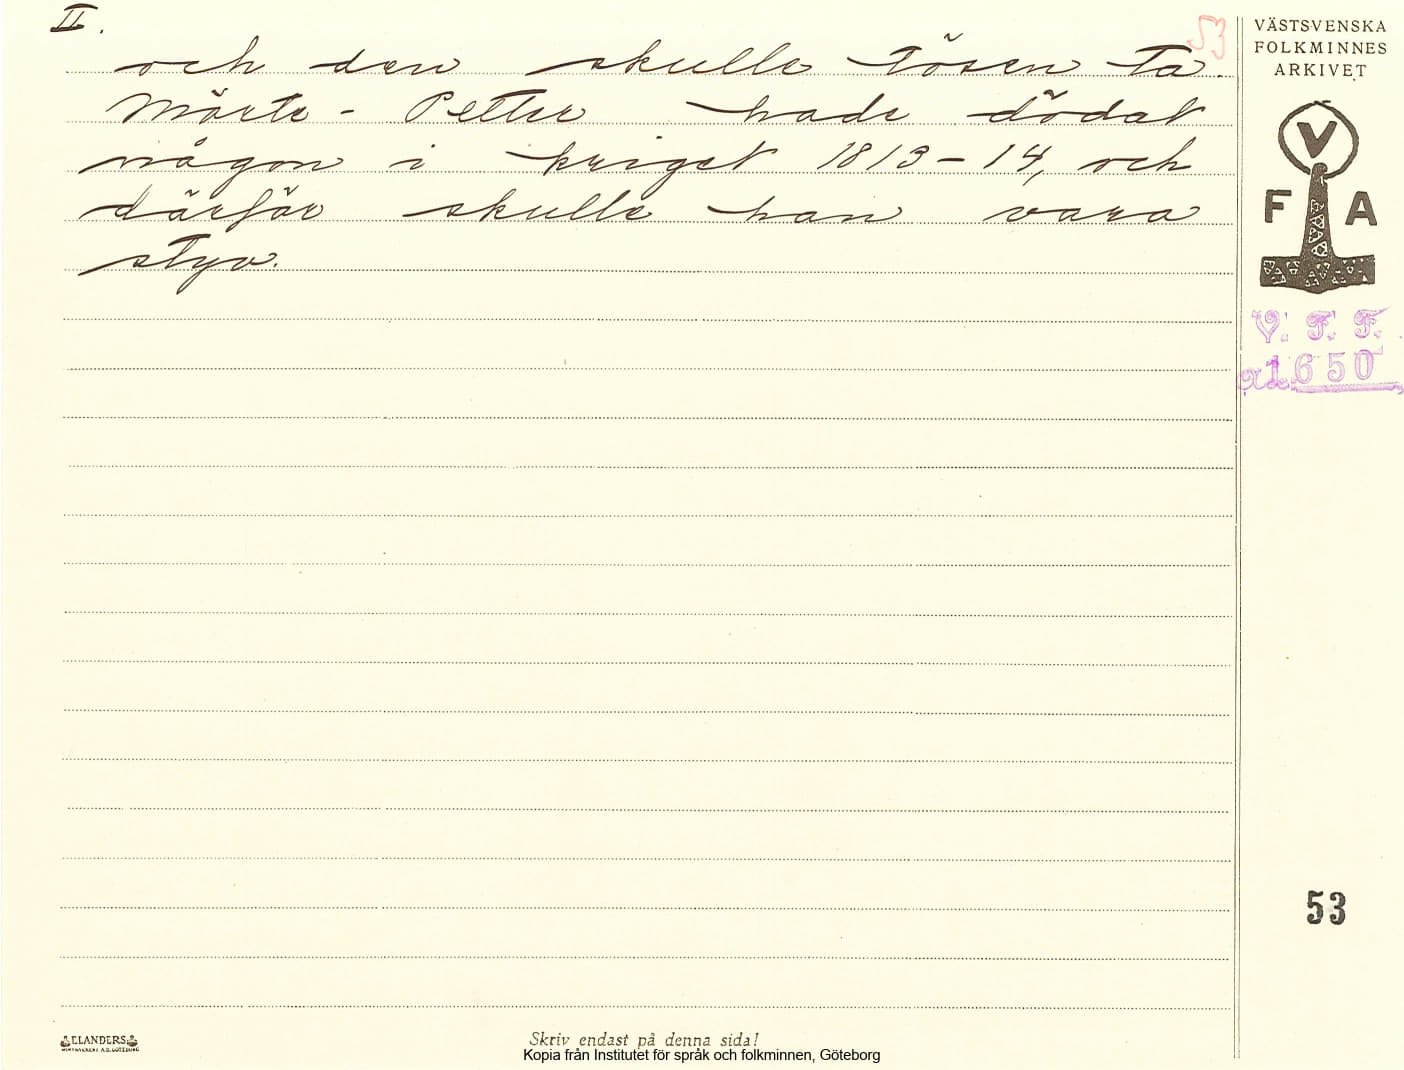 II.
53
och den skulle tösen ta.
Mörte-Petter hade dödat
någon i kriget 1813-14, och
därför skulle han vara
styv.
VÄSTSVENSKA
FOLKMINNES
ARKIVET
V
F A
V. F. F.
1650
53
ELANDERS
Skriv endast på denna sida!
Kopia från Institutet för språk och folkminnen, Göteborg